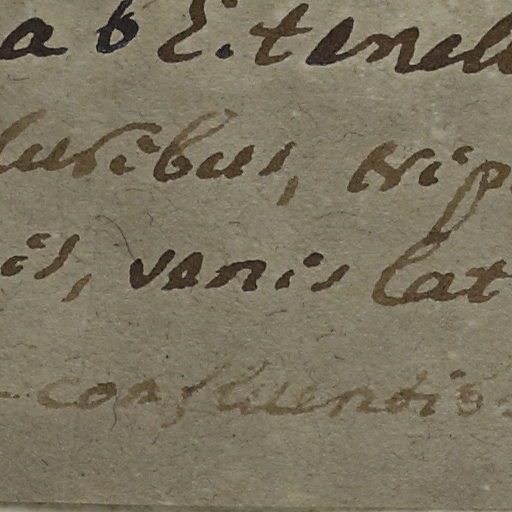 a b E. tenell
luribus, trip
is, venis lat
confluentib